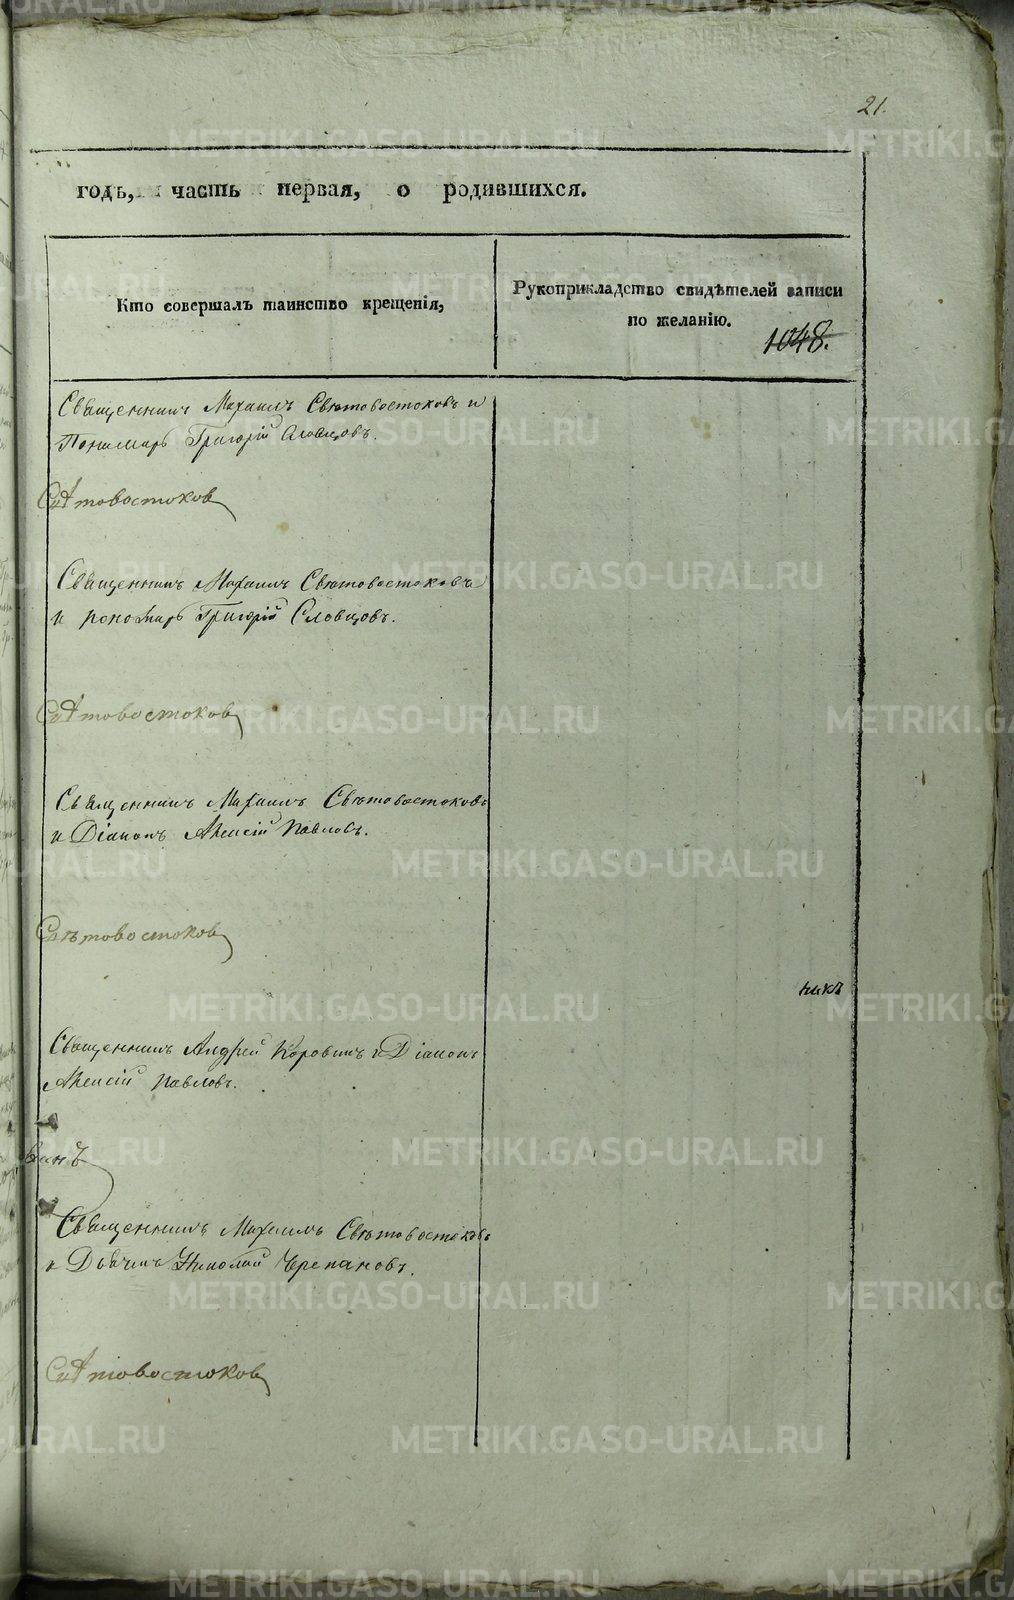 21.
годъ, часть первая, о родившихся.
Кто совершалъ таинство крещенія,
Рукоприкладство свидѣтелей записи
по желанію.
1048.
Священникъ Михаилъ Свѣтовостоковъ и
Пономарь Григорій Словцовъ.
Свѣтовостоков
Священникъ Михаилъ Свѣтовостоковъ
и пономарь Григорій Словцовъ.
Свѣтовостоков
Священникъ Михаилъ Свѣтовостоковъ
и Діаконъ Алексій Павловъ.
Свѣтовостоков
никъ
Священникъ Андрей Коровинъ и Діаконъ
Алексій Павловъ.
винъ
Священникъ Михаилъ Свѣтовостоковъ
и Дьячикъ Николай Черепановъ.
Свѣтовостоков
METRIKI.GASO-URAL.RU